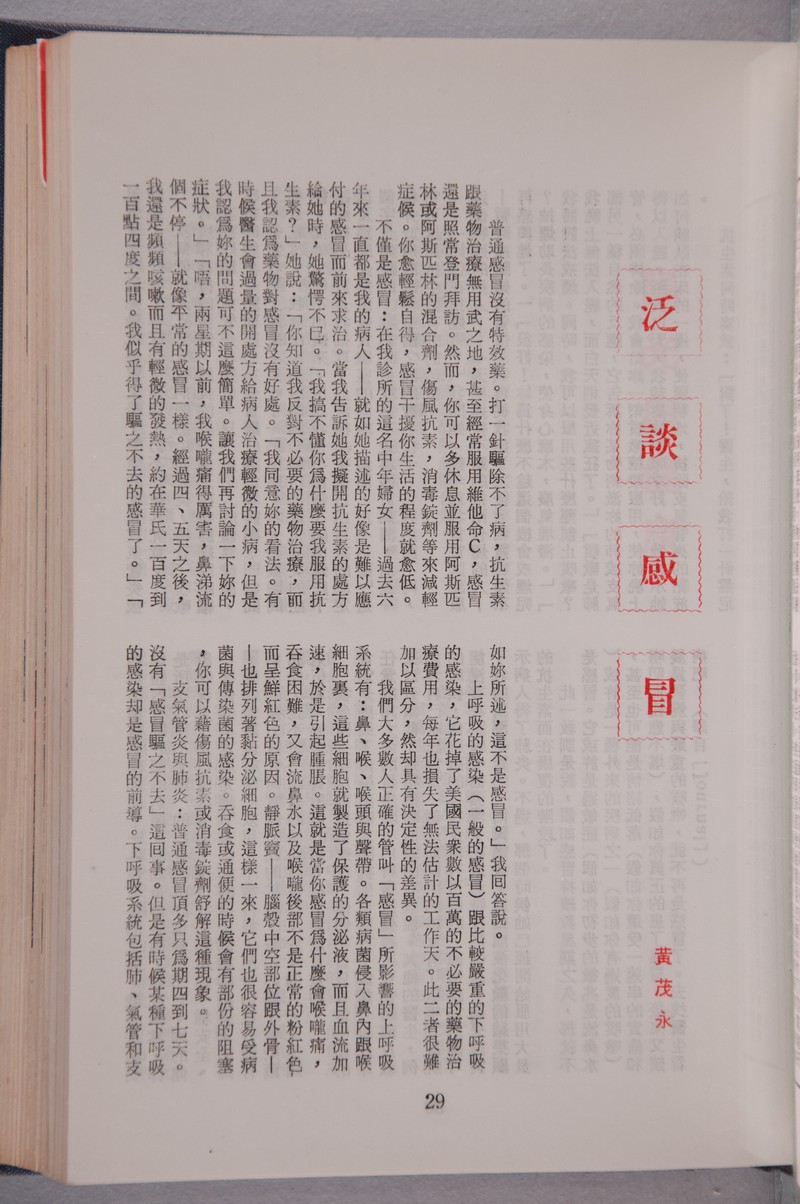 泛談感冒
黃茂永
普通感冒沒有特效藥。打一針驅除不了病，抗生素
跟藥物治療無用武之地，甚至經常服用維他命C，感冒
還是照常登門拜訪。然而，你可以多休息並服用阿斯匹
林或阿斯匹林的混合劑，傷風抗素，消毒錠劑等來減輕
症候。你愈輕鬆自得，感冒干擾你生活的程度就愈低。
不僅是感冒：在我診所的這名中年婦女——過去六
年來一直都是我的病人——就如她描述的好像是難以應
付的感冒而前來求治。當我告訴她我擬開抗生素的處方
給她時，她驚愕不已。「我搞不懂你爲什麼要我服用抗
生素？」她說：「你知道我反對不必要的藥物治療，而
且我認爲藥物對感冒沒有好處。「我同意妳的看法。有
時候醫生會過量的開處方給病人治療輕微的小病，但是
我認爲妳的問題可不這麼簡單。讓我們再討論一下妳的
症狀。」「唔，兩星期以前，我喉嚨痛得厲害，鼻涕流
個不停——就像平常的感冒一樣。經過四、五天之後，
我還是頻頻咳嗽而且有輕微的發熱，約在華氏一百度到
一百點四度之間。我似乎得了驅之不去的感冒了。」「
如妳所述，這不是感冒。」我回答說。
上呼吸的感染（一般的感冒）跟比較嚴重的下呼吸
的感染，它花掉了美國民衆數以百萬的不必要的藥物治
療費用，每年也損失了無法估計的工作天。此二者很難
加以區分，然却具有決定性的差異。
我們大多數人正確的管叫「感冒」所影響的上呼吸
系統有：鼻、喉、喉頭與聲帶。各類病菌侵入鼻內跟喉
細胞裏，這些細胞就製造了保護的分泌液，而且血流加
速，於是引起腫脹。這就是當你感冒爲什麼會喉嚨痛，
吞食困難，又會流鼻水以及喉嚨後部不是正常的粉紅色
而呈鮮紅色的原因。靜脈竇——腦殼中空部位跟外骨—
—也排列著黏分泌細胞，這樣一來，它們也很容易受病
菌與傳染菌的感染。吞食或通便的時候會有部份的阻塞
，你可以藉傷風抗素或消毒錠劑舒解這種現象。
支氣管炎與肺炎：普通感冒頂多只爲期四到七天。
沒有「感冒驅之不去」這回事。但是有時候某種下呼吸
的感染却是感冒的前導。下呼吸系統包括肺、氣管和支
29